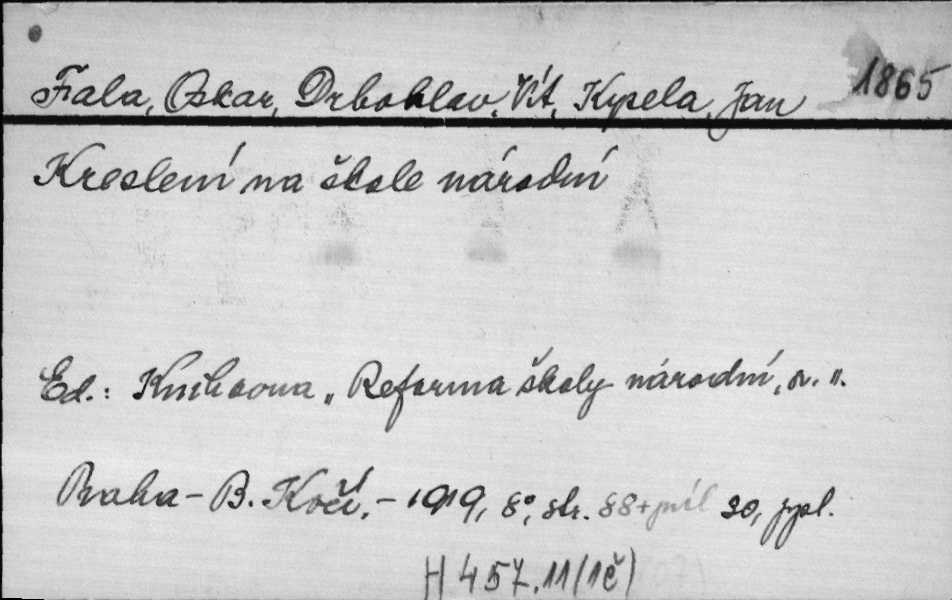 Fiala, Oskar, Drbohlav, Vít, Kypela, Jan 1865
Kreslení na škole národní
Ed.: Knihovna „Reforma školy národní,
Praha - B. Kočí, - 1919, 8°, str. 88+příl 20,
H 457.11(1č)